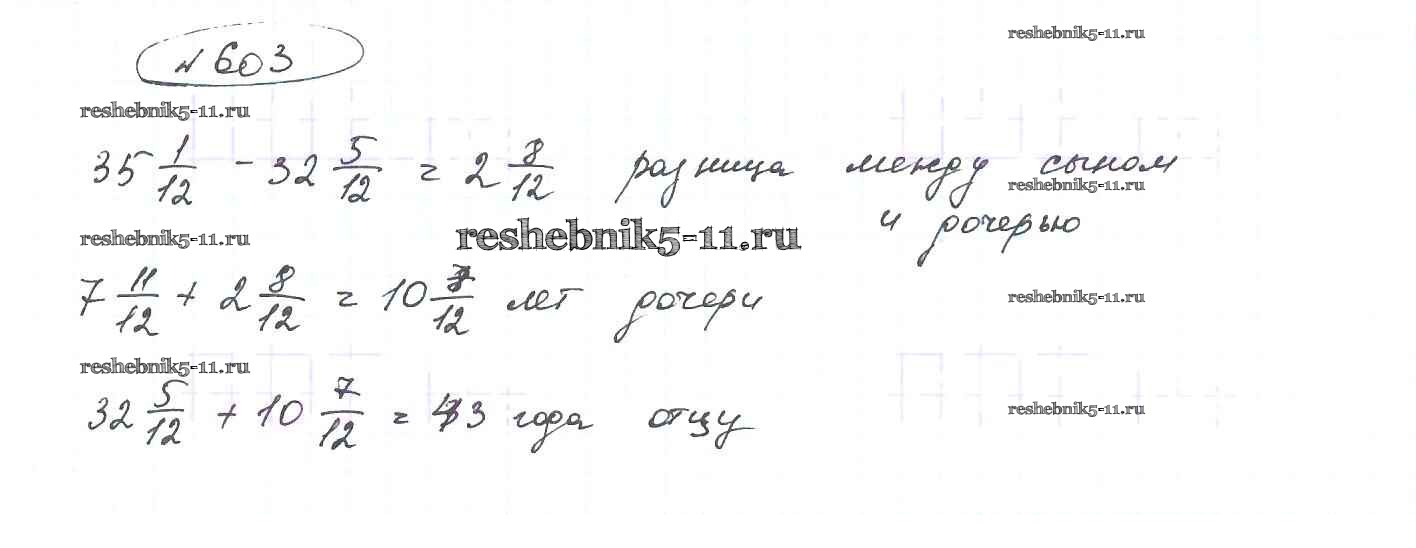 reshebnik5-11.ru
№ 603
reshebnik5-11.ru
35 1/12 - 32 5/12 = 2 8/12 разница между сыном
reshebnik5-11.ru
и дочерью
reshebnik5-11.ru
reshebnik5-11.ru
7 11/12 + 2 8/12 = 10 7/12 лет дочери
reshebnik5-11.ru
reshebnik5-11.ru
32 5/12 + 10 7/12 = 43 года отцу
reshebnik5-11.ru